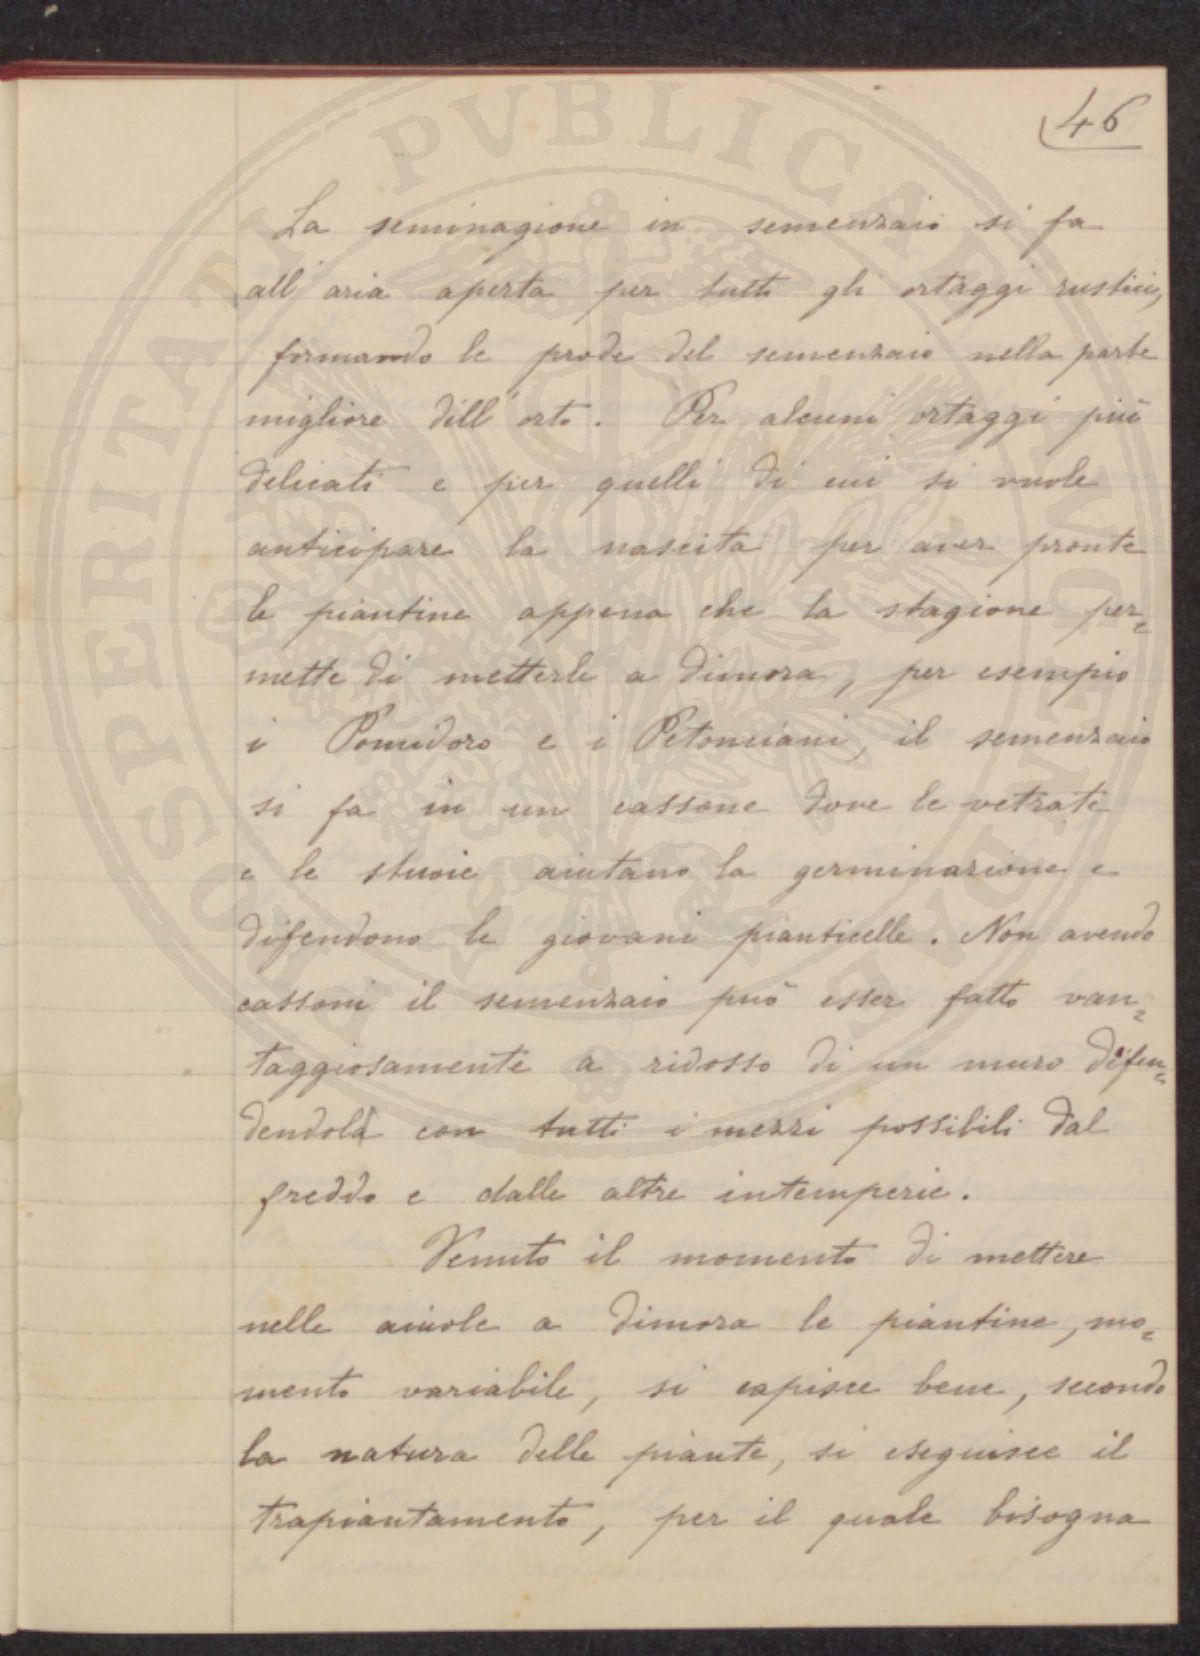 46
La seminagione in semenzaio si fa
all'aria aperta per tutti gli ortaggi rustici,
formando le prode del semenzaio nella parte
migliore dell'orto. Per alcuni ortaggi più
delicati e per quelli di cui si vuole
anticipare la nascita per aver pronte
le piantine appena che la stagione per=
mette di metterle a dimora, per esempio
i Pomidoro e i Petonciani, il semenzaio
si fa in un cassone dove le vetrate
e le stuoie aiutano la germinazione e
difendono le giovani pianticelle. Non avendo
cassoni il semenzaio può esser fatto van=
taggiosamente a ridosso di un muro difen=
dendola con tutti i mezzi possibili dal
freddo e dalle altre intemperie.
Venuto il momento di mettere
nelle aiuole a dimora le piantine, mo=
mento variabile, si capisce bene, secondo
la natura delle piante, si eseguisce il
trapiantamento, per il quale bisogna
PROSPERITATI PVBLICAE AVGENDAE